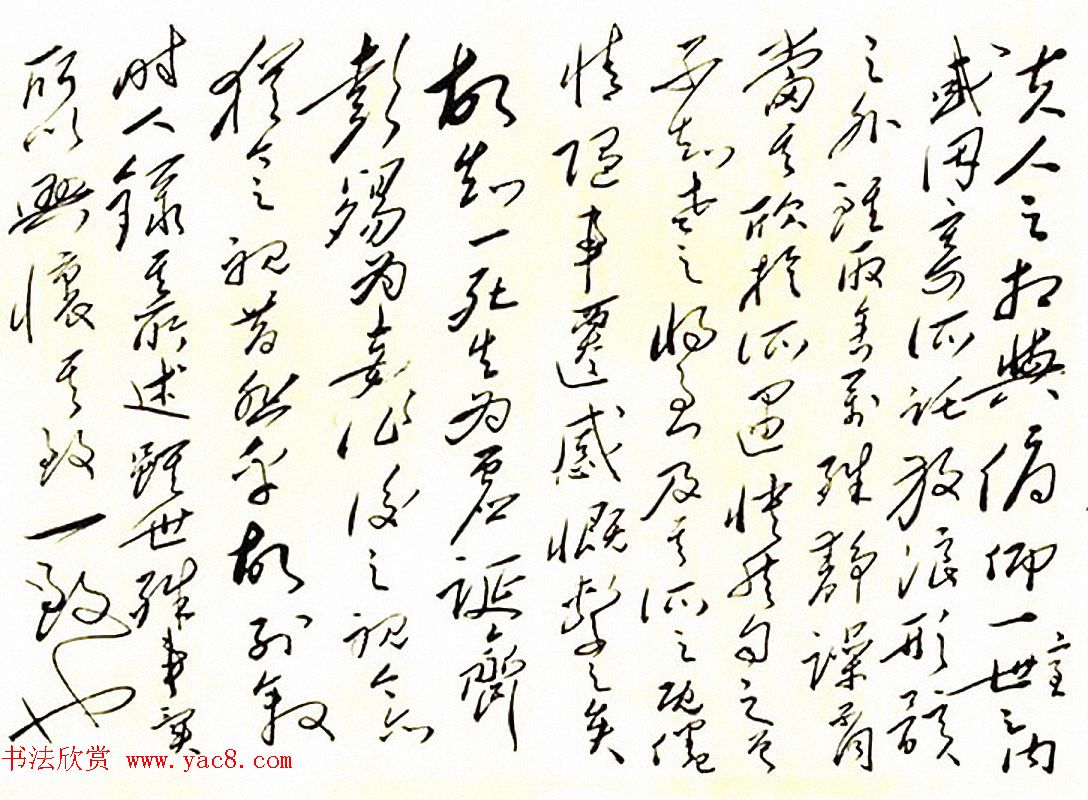 夫人之相與俯仰一世之内
室
或因寄所託放浪形骸
之外雖取舍萬殊靜躁不同
當其欣於所遇快然自足
不知老之將至及其所之既倦
情隨事遷感慨繫之矣
故知一死生為虛誕齊
彭殤為妄作後之視今亦
猶今之視昔悲乎故列敘
時人錄其所述雖世殊事異
所以興懷其致一致也
书法欣赏 www.yac8.com